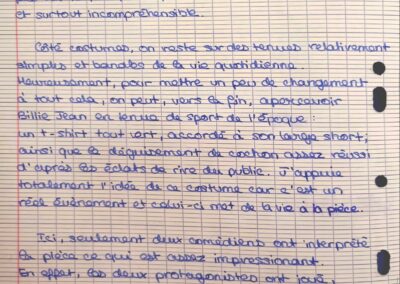 et surtout incompréhensible.
Côté costumes, on reste sur des tenues relativement
simples et banales de la vie quotidienne.
Heureusement, pour mettre un peu de changement
à tout cela, on peut, vers la fin, apercevoir
Billie Jean en tenue de sport de l'époque :
un t-shirt tout vert, accordé à son large short ;
ainsi que le déguisement de cochon assez réussi
d'après les éclats de rire du public. J'appuie
totalement l'idée de ce costume car c'est un
réel évènement et celui-ci met de la vie à la pièce.
Ici, seulement deux comédiens ont interprété
la pièce ce qui est assez impressionnant.
En effet, les deux protagonistes ont joué,